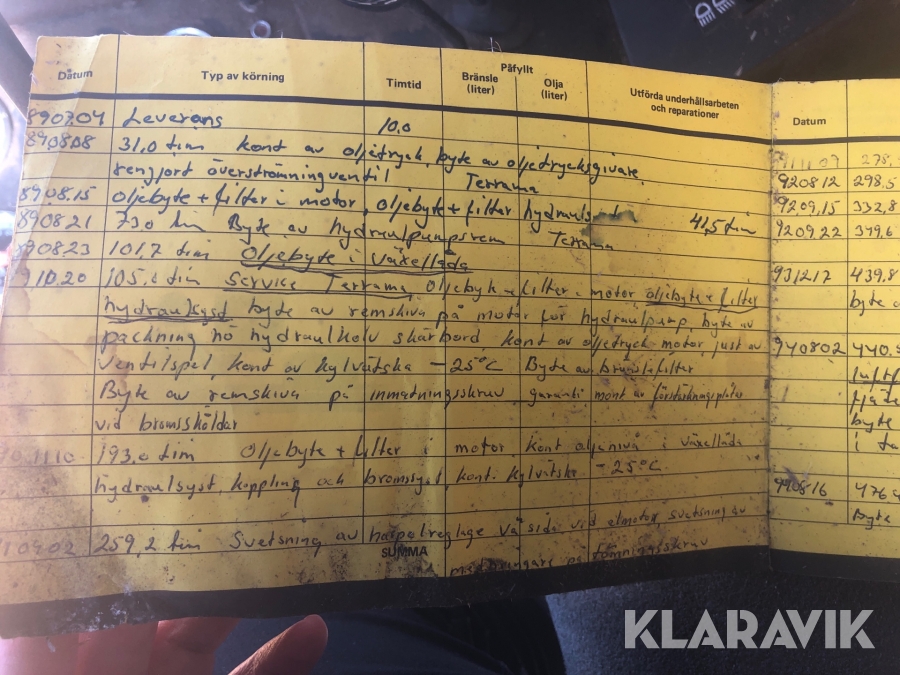 Datum Typ av körning Timtid Påfyllt Bränsle (liter) Olja (liter) Utförda underhållsarbeten och reparationer
890704 Leverans 10,0
890808 31,0 tim kont av oljetryck, byte av oljetrycksgivare,
rengjort överströmningventil Terrama
8908.15 oljebyte + filter i motor, oljebyte + filter hydraulsyst 41,5 tim
890821 73,0 tim Byte av hydraulpumpsrem Terrama
890823 101,7 tim Oljebyte i växellåda
910.20 105,0 tim Service Terrama, oljebyte + filter i motor, oljebyte + filter
hydraulsyst byte av remskiva på motor för hydraulpump, byte av
packning hö hydraulkolv skärbord, kont av oljetryck motor, just av
ventilspel, kont av kylvätska -25°C Byte av bränslefilter
Byte av remskiva på inmatningsskruv garanti mont av förstärkningsplåtar
vid bromssköldar
193,0 tim Oljebyte + filter i motor kont oljenivå i växellåda
hydraulsyst, koppling och bromssyst, kont. kylvätska -25°C
259,2 tim Svetsning av haspelreglage vä sida vid elmotor, svetsning av
SUMMA
på tömningsskruv
Datum
911109 278,
920812 298,5
9209,15 332,8
9209,22 379,6
931217 439,8
byte
940802 440,
luftf
byte
i
940816 476
Byte
KLARAVIK